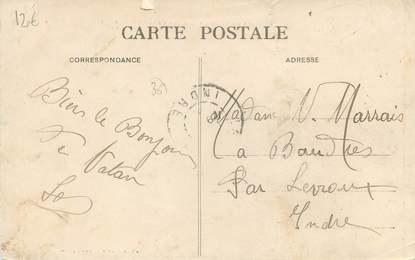 12€
CARTE POSTALE
CORRESPONDANCE
ADRESSE
36
INDRE
Bien le Bonjour
de Vatan
Madame V. Marrais
a Baudres
Par Levroux
Indre